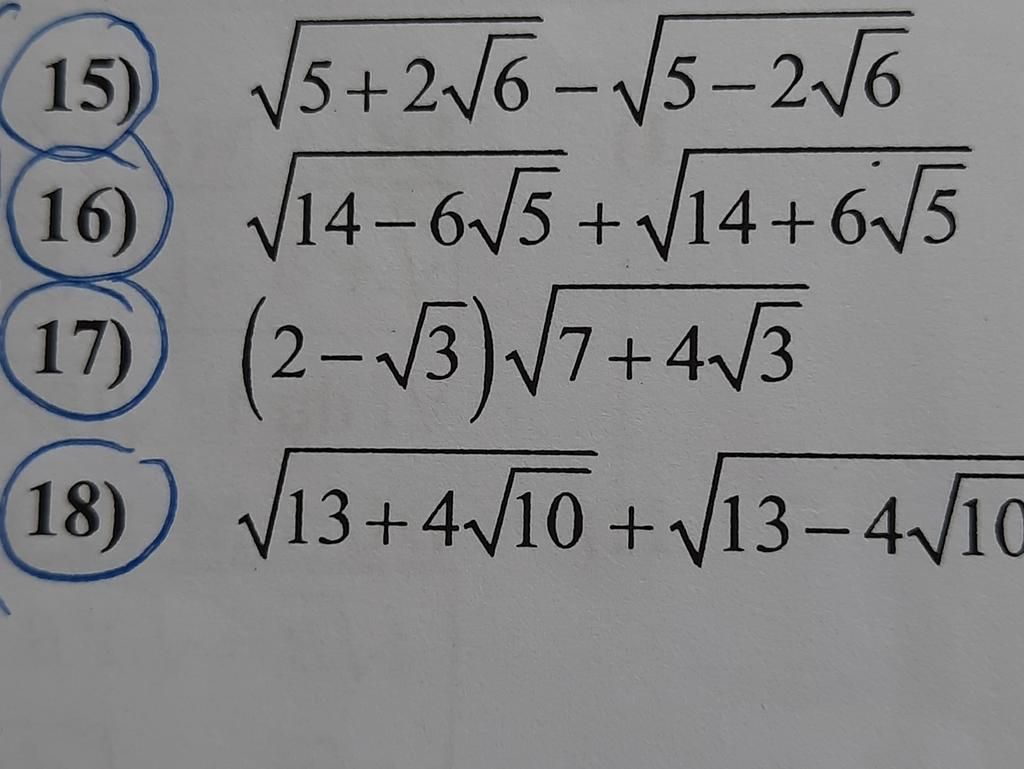 15) √(5+2√6) − √(5−2√6)
16) √(14−6√5) + √(14+6√5)
17) (2−√3)√(7+4√3)
18) √(13+4√10) + √(13−4√10)